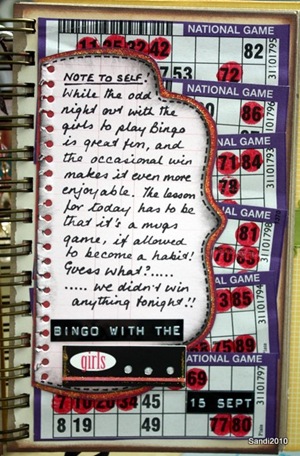 NATIONAL GAME
11 25 32 42 82
53 72
31101795
NOTE TO SELF!
While the odd
night out with the
girls to play Bingo
is great fun, and
the occasional win
makes it even more
enjoyable. The lesson
for today has to be
that it's a mugs
game, if allowed
to become a habit!
Guess what?.....
..... we didn't win
anything tonight!!
NATIONAL GAME
86
NATIONAL GAME
71 84
78
NATIONAL GAME
81
70 83
NATIONAL GAME
3 85
75 89
BINGO WITH THE
girls
NATIONAL GAME
69
31101797
15 SEPT
7 10 26 34 45
8 19 49 77 80
Sandi2010